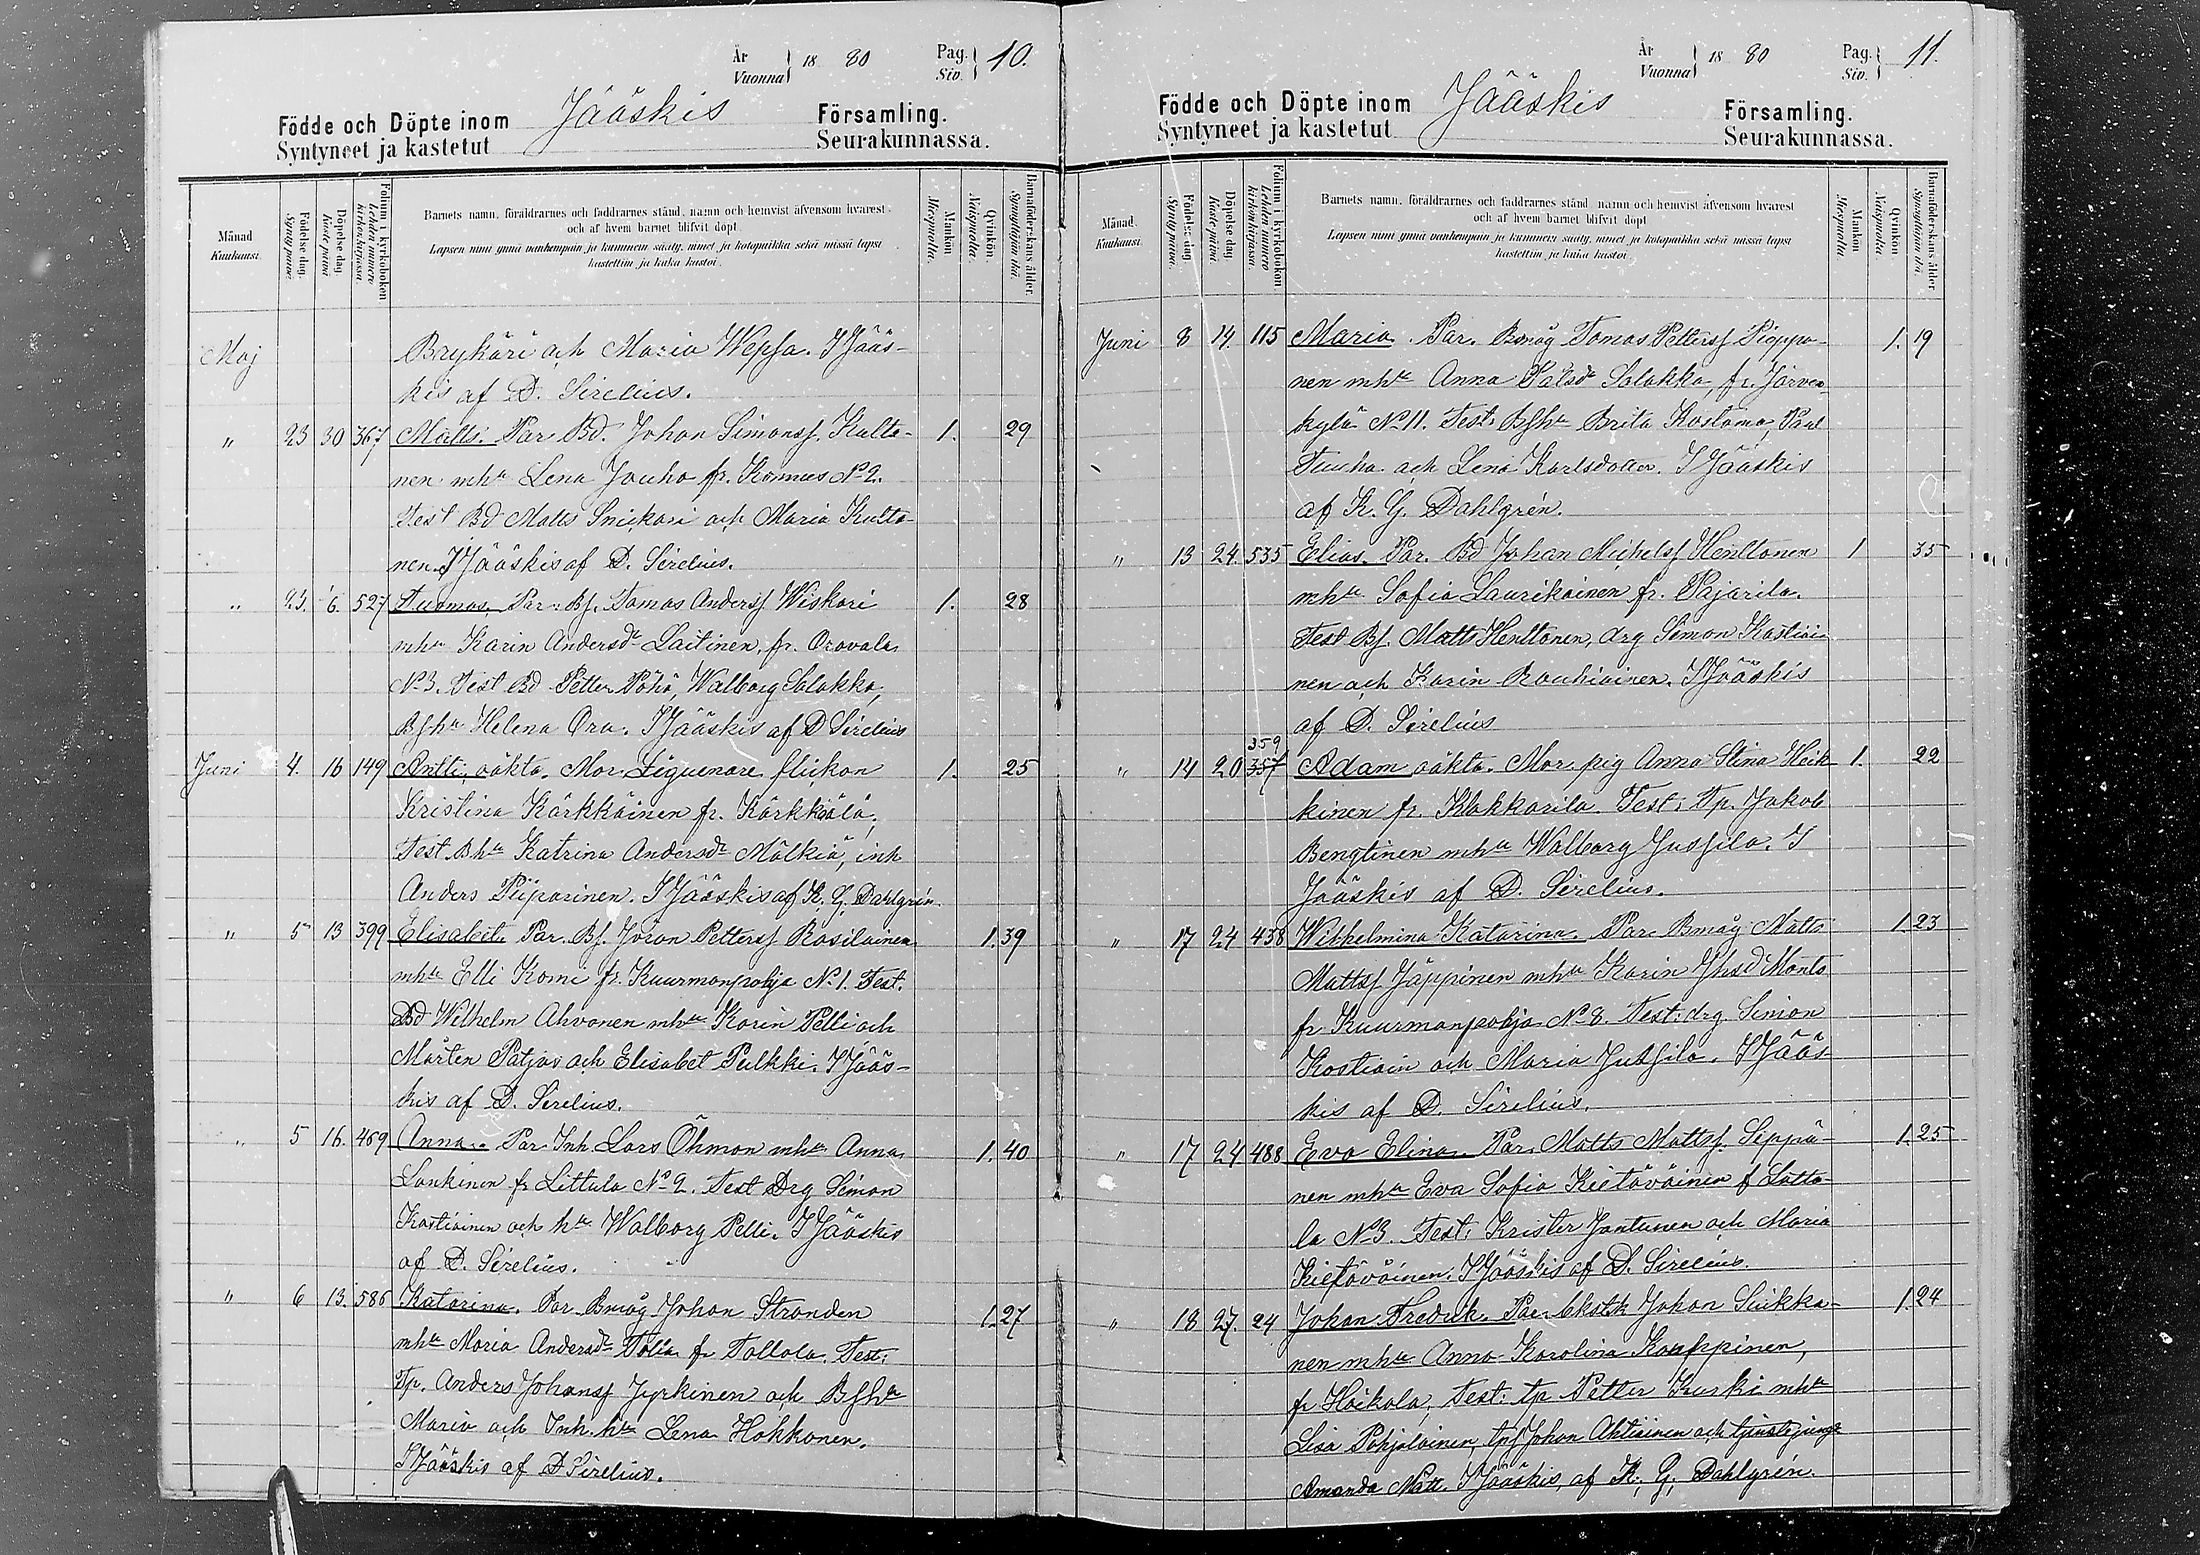 År
Vuonna 18 80 Pag.
Siv. 10.
Födde och Döpte inom Jääskis Församling.
Syntyneet ja kastetut Seurakunnassa.
Månad
Kuukausi.
Födelse dag.
Synty päivä.
Döpelse dag.
Kaste päivä.
Folium i kyrkoboken
Lehden numero
kirkonkirjassa.
Barnets namn, föräldrarnes och faddrarnes stånd, namn och hemvist äfvensom hvarest
och af hvem barnet blifvit döpt.
Lapsen nimi ynnä vanhempain ja kummein sääty, nimet ja kotopaikka sekä missä lapsi
kastettiin ja kuka kastoi.
Mankön
Miespuolia.
Qvinkön
Naispuolia.
Barnaföderskans ålder.
Synnyttäjän ikä.
Maj Brykäri och Maria Wepsa. I Jääs-
kis af D. Sirelius.
" 23 30 367 Matts. Par Bd. Johan Simonsf. Kulta- 1. 29
nen mhu Lena Jouho fr. Konnus No 2.
Test Bd Matts Snickari och Maria Kulta-
nen. I Jääskis af D. Sirelius.
" 23. 6. 527 Tuomas, Par. Bf. Tomas Andersf Wiskari 1. 28
mhu Karin Andersdr Laitinen, fr. Oravala
No 3. Test Bd Petter Pöhö, Walborg Salakka,
Bfhu Helena Ora. I Jääskis af D Sirelius
Juni 4. 16 149 Antti, oäkta. Mor Liguenare flickan 1. 25
Kristina Kärkkäinen fr. Kärkkiälä,
Test. Bhu Katrina Andersdr Mälkiä, inh
Anders Piiparinen. I Jääskis af K. G. Dahlgrén.
" 5 13 399 Elisabet. Par. Bf. Jöran Pettersf Rasilainen 1. 39
mhu Elli Komi fr. Kuurmanpohja No 1. Test.
Bd Wilhelm Ahvonen mhu Karin Pelli och
Mårten Patjas och Elisabet Pulkki. I Jääs-
kis af D. Sirelius.
" 5 16. 469 Anna. Par Inh Lars Öhman mhu Anna 1. 40
Lankinen fr Littula No 2. Test Drg Simon
Kostiainen och hu Walborg Pelli. I Jääskis
af D. Sirelius.
" 6 13. 586 Katarina. Par Bmåg Johan Stranden 1. 27
mhu Maria Andersdr Tolia fr Tallola. Test:
Tp. Anders Johansf Jyrkinen och Bfhu
Maria och Inh. hu Lena Hokkanen.
I Jääskis af D Sirelius.
År
Vuonna 18 80 Pag.
Siv. 11.
Födde och Döpte inom Jääskis Församling.
Syntyneet ja kastetut Seurakunnassa.
Månad.
Kuukausi.
Födelse dag.
Synty päivä.
Döpelse dag.
Kaste päivä.
Folium i kyrkoboken.
Lehden numero
kirkonkirjassa.
Barnets namn, föräldrarnes och faddrarnes stånd, namn och hemvist äfvensom hvarest
och af hvem barnet blifvit döpt
Lapsen nimi ynnä vanhempain ja kummein sääty, nimet ja kotopaikka sekä missä lapsi
kastettiin ja kuka kastoi
Mankön
Miespuolia.
Qvinkön
Naispuolia.
Barnaföderskans ålder.
Synnyttäjän ikä.
Juni 8 14. 115 Maria. Par. Bmåg Tomas Pettersf Pieppo- 1. 19
nen mhu Anna Pålsdr Salakka, fr. Järven-
kylä No 11. Test: Bfhu Brita Kostamo, Paul
Tuuha och Lena Karlsdotter. I Jääskis
af K. G. Dahlgrén.
" 13 24. 535 Elias. Par. Bd Johan Michelsf Henttonen 1 35
mhu Sofia Laurikainen fr. Pajarila.
Test Bf. Matts Henttonen, drg Simon Kostiai-
nen och Karin Rouhiainen. I Jääskis
af D. Sirelius
" 14 20 359 357 Adam oäkta. Mor pig Anna Stina Heik- 1. 22
kinen fr. Klakkarila. Test: Tp. Jakob
Bengtinen mhu Walborg Jussila. I
Jääskis af D. Sirelius.
" 17 24 438 Wilhelmina Katarina. Par Bmåg Matts 1 23
Mattsf Jäppinen mhu Karin Jhsd Monto
fr Kuurmanpohja No 8. Test: drg Simon
Kostiain och Maria Jussila. I Jääs-
kis af D. Sirelius.
" 17 24 488 Eva Elina. Par. Matts Mattsf. Seppä- 1. 25
nen mhu Eva Sofia Kietäväinen f Lotto-
la No 3. Test: Krister Jantunen och Maria
Kietäväinen. I Jääskis af D. Sirelius.
" 18 27. 24 Johan Fredrik. Par. Johan Siukka- 1. 24
nen mhu Anna Karolina Kauppinen,
fr Höikola, Test: tp Petter Kurki mhu
Lisa Pohjolainen, tp Johan Ahtiainen och tjenstepiga
Amanda Mätt. I Jääskis, af K. G. Dahlgrén.